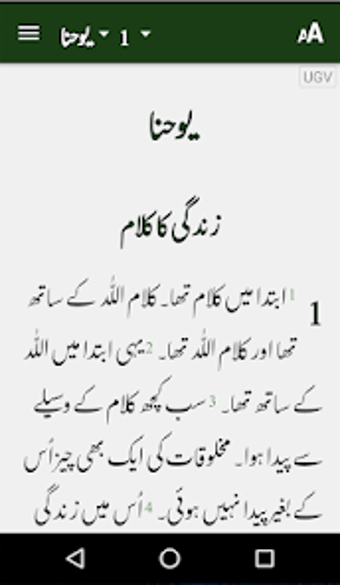 یوحنا 1 AA
UGV
یوحنا
زندگی کا کلام
1 1 ابتدا میں کلام تھا۔ کلام اللہ کے ساتھ
تھا اور کلام اللہ تھا۔ 2 یہی ابتدا میں اللہ
کے ساتھ تھا۔ 3 سب کچھ کلام کے وسیلے
سے پیدا ہوا۔ مخلوقات کی ایک بھی چیز اُس
کے بغیر پیدا نہیں ہوئی۔ 4 اُس میں زندگی